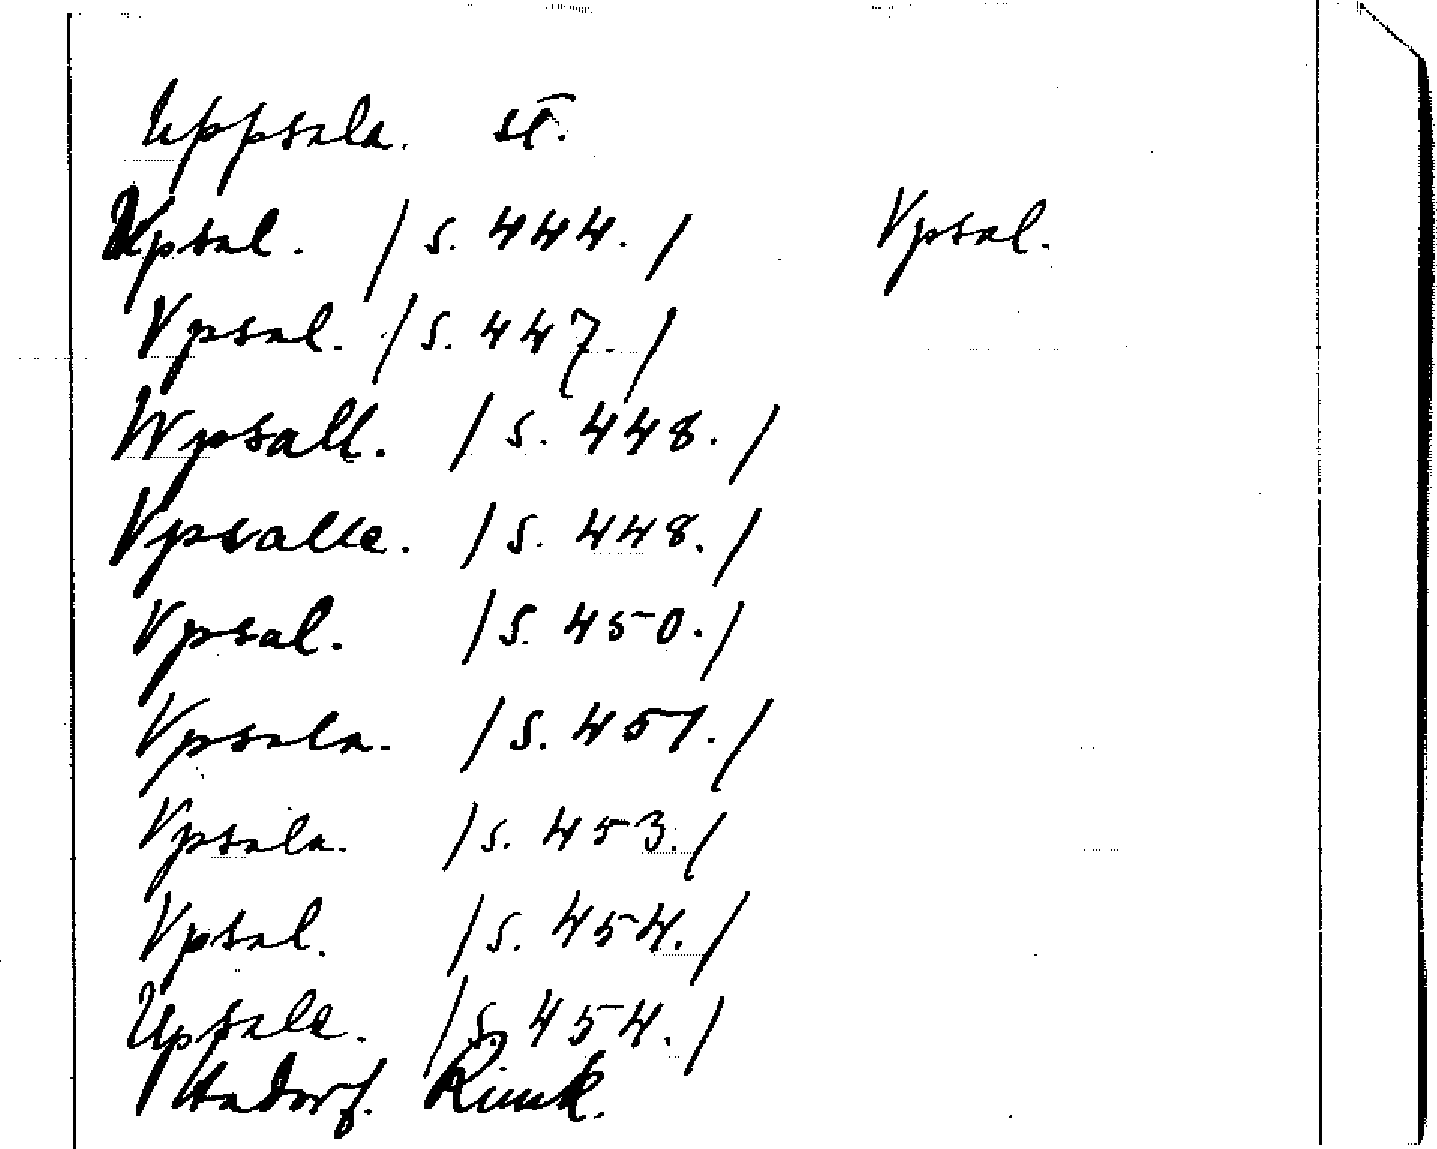 Uppsala. st.
Upsal. /S. 444./ Vpsal.
Vpsal. /S. 447./
Wpsall. /S. 448./
Vpsalle. /S. 448./
Vpsal. /S. 450./
Vpsala. /S. 451./
Vpsala. /S. 453./
Vpsal. /S. 454./
Upsala. /S. 454./